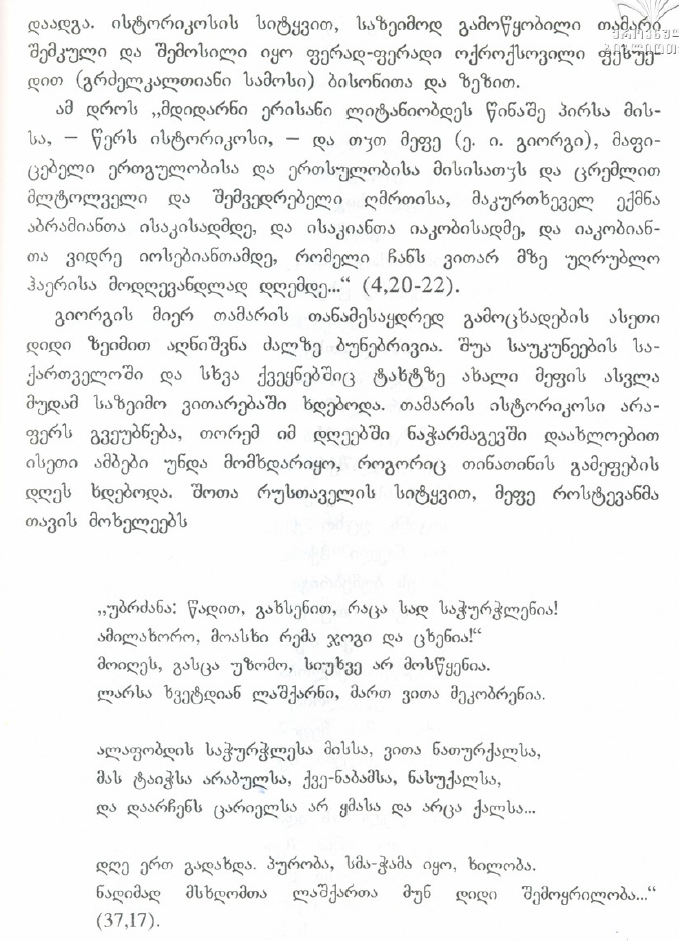 დაადგა. ისტორიკოსის სიტყვით, საზეიმოდ გამოწყობილი თამარი
შემკული და შემოსილი იყო ფერად-ფერადი ოქროქსოვილი ფესუე-
დით (გრძელკალთიანი სამოსი) ბისონითა და ზეზით.
ამ დროს „მდიდარნი ერისანი ლიტანიობდეს წინაშე პირსა მის-
სა, — წერს ისტორიკოსი, — და თჳთ მეფე (ე. ი. გიორგი), მაფი-
ცებელი ერთგულობისა და ერთსულობისა მისისათჳს და ცრემლით
მლტოლველი და შემვედრებელი ღმრთისა, მაკურთხეველ ექმნა
აბრამიანთა ისაკისადმდე, და ისაკიანთა იაკობისადმე, და იაკობიან-
თა ვიდრე იოსებიანთამდე, რომელი ჩანს ვითარ მზე უღრუბლო
ჰაერისა მოდღევანდლად დღემდე...“ (4,20-22).
გიორგის მიერ თამარის თანამესაყდრედ გამოცხადების ასეთი
დიდი ზეიმით აღნიშვნა ძალზე ბუნებრივია. შუა საუკუნეების სა-
ქართველოში და სხვა ქვეყნებშიც ტახტზე ახალი მეფის ასვლა
მუდამ საზეიმო ვითარებაში ხდებოდა. თამარის ისტორიკოსი არა-
ფერს გვეუბნება, თორემ იმ დღეებში ნაჭარმაგევში დაახლოებით
ისეთი ამბები უნდა მომხდარიყო, როგორიც თინათინის გამეფების
დღეს ხდებოდა. შოთა რუსთაველის სიტყვით, მეფე როსტევანმა
თავის მოხელეებს
„უბრძანა: წადით, გახსენით, რაცა სად საჭურჭლენია!
ამილახორო, მოასხი რემა ჯოგი და ცხენია!“
მოიღეს, გასცა უზომო, სიუხვე არ მოსწყენია.
ლარსა ხვეტდიან ლაშქარნი, მართ ვითა მეკობრენია.
ალაფობდის საჭურჭლესა მისსა, ვითა ნათურქალსა,
მას ტაიჭსა არაბულსა, ქვე-ნაბამსა, ნასუქალსა,
და დაარჩენს ცარიელსა არ ყმასა და არცა ქალსა...
დღე ერთ გადახდა. პურობა, სმა-ჭამა იყო, ხილობა.
ნადიმად მსხდომთა ლაშქართა მუნ დიდი შემოყრილობა...“
(37,17).